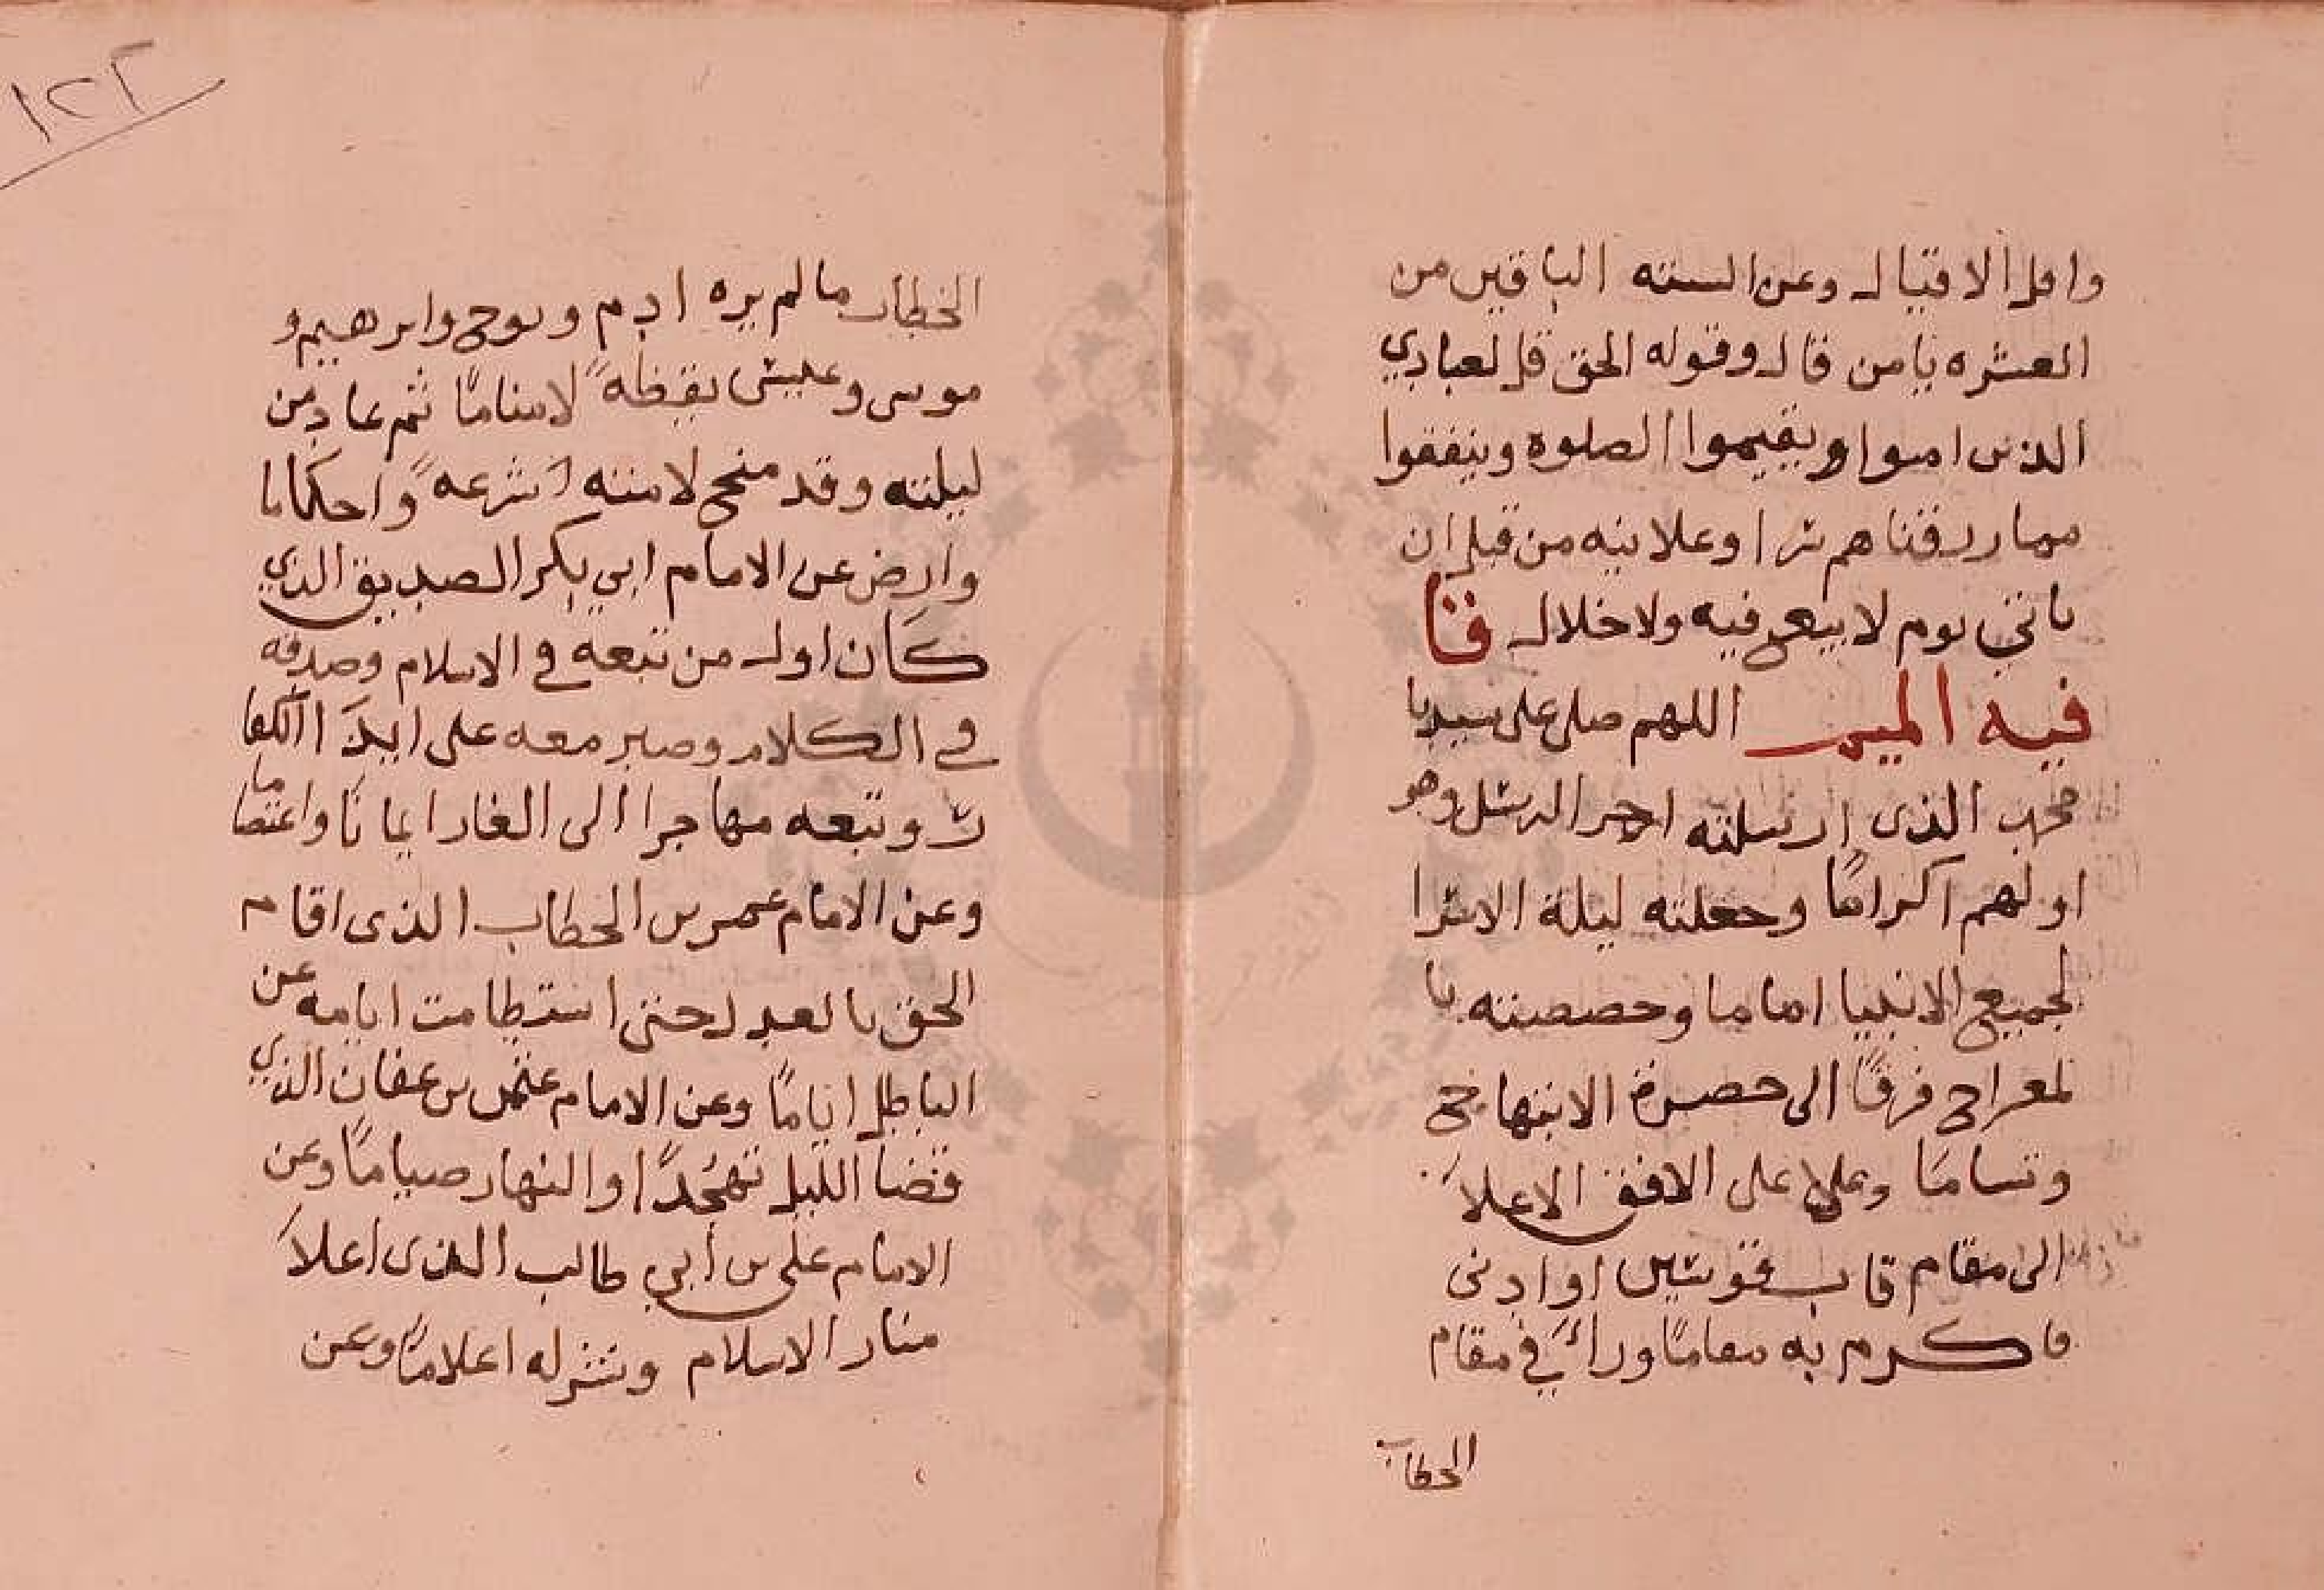 واهل الاقيال وعن السته الباقين من
العشره يا من قال وقوله الحق قل لعبادي
الذين امنوا ويقيموا الصلوه وينفقوا
مما رزقناهم سرا وعلانيه من قبل ان
ياتي يوم لا بيع فيه ولا خلال قا
فيه الميم اللهم صل على سيدنا
محمد الذى ارسلته اخر الرسل وهو
اولهم اكراما وجعلته ليلة الاسرا
لجميع الانبيا اماما وخصصته با
لمعراج فرقا الى حضرة الابتهاج
وتساما وعلا على الافق الاعلا
الى مقام قاب قوسين او ادنى
فاكرم به مقاما وراى في مقام
الخطاب
١٢٢
الخطاب ما لم يره ادم ونوح وابرهيم و
موسى وعيسى يقظة لا مناما ثم عاد من
ليلته وقد منح لامته شرعه واحكاما
وارض عن الامام ابي بكر الصديق الذي
كان اول من تبعه في الاسلام وصدقه
في الكلام وصبر معه على ايذا الكفا
ر وتبعه مهاجرا الى الغار ايمانا واعتصاما
وعن الامام عمر بن الخطاب الذى اقام
الحق بالعدل حتى استطامت ايامه عن
الباطل اياما وعن الامام عثمن بن عفان الذي
قضا الليل تهجدا والنهار صياما وعن
الامام على بن ابي طالب الذى اعلا
منار الاسلام ونشر له اعلاما وعن